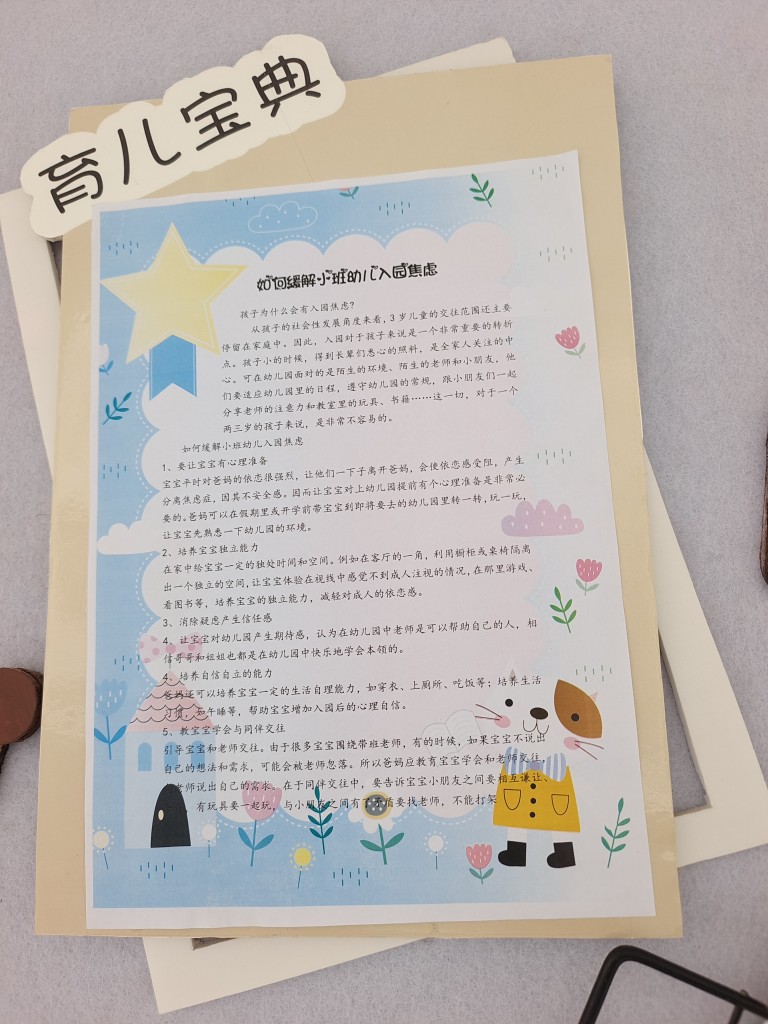 育儿宝典
如何缓解小班幼儿入园焦虑
孩子为什么会有入园焦虑?
从孩子的社会性发展角度来看,3 岁儿童的交往范围还主要
停留在家庭中。因此,入园对于孩子来说是一个非常重要的转折
点。孩子小的时候,得到长辈们悉心的照料,是全家人关注的中
心。可在幼儿园面对的是陌生的环境、陌生的老师和小朋友,他
们要适应幼儿园里的日程,遵守幼儿园的常规,跟小朋友们一起
分享老师的注意力和教室里的玩具、书籍……这一切,对于一个
两三岁的孩子来说,是非常不容易的。
如何缓解小班幼儿入园焦虑
1、要让宝宝有心理准备
宝宝平时对爸妈的依恋很强烈,让他们一下子离开爸妈,会使依恋感受阻,产生
分离焦虑症,因其不安全感。因而让宝宝对上幼儿园提前有个心理准备是非常必
要的。爸妈可以在假期里或开学前带宝宝到即将要去的幼儿园里转一转,玩一玩,
让宝宝先熟悉一下幼儿园的环境。
2、培养宝宝独立能力
在家中给宝宝一定的独处时间和空间。例如在客厅的一角,利用橱柜或桌椅隔离
出一个独立的空间,让宝宝体验在视线中感觉不到成人注视的情况,在那里游戏、
看图书等,培养宝宝的独立能力,减轻对成人的依恋感。
3、消除疑虑产生信任感
4、让宝宝对幼儿园产生期待感,认为在幼儿园中老师是可以帮助自己的人,相
信哥哥和姐姐也都是在幼儿园中快乐地学会本领的。
4、培养自信自立的能力
爸妈还可以培养宝宝一定的生活自理能力,如穿衣、上厕所、吃饭等;培养生活
习惯,如午睡等,帮助宝宝增加入园后的心理自信。
5、教宝宝学会与同伴交往
引导宝宝和老师交往。由于很多宝宝围绕带班老师,有的时候,如果宝宝不说出
自己的想法和需求,可能会被老师忽落。所以爸妈应教育宝宝学会和老师交往,
老师说出自己的需求。在于同伴交往中,要告诉宝宝小朋友之间要相互谦让、
有玩具要一起玩,与小朋友之间有了矛盾要找老师,不能打架